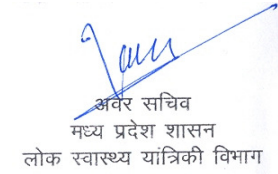 अवर सचिव
मध्य प्रदेश शासन
लोक स्वास्थ्य यांत्रिकी विभाग